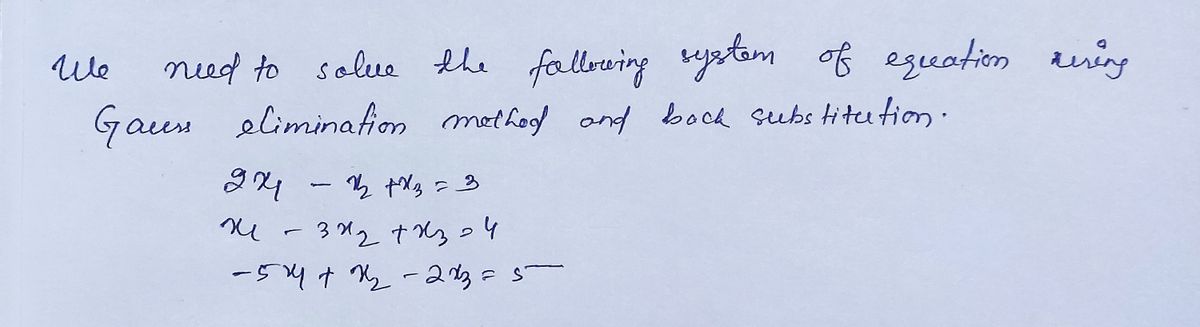 We need to solve the following system of equation using
Gauss elimination method and back substitution.
2x₁ - x₂ + x₃ = 3
x₁ - 3x₂ + x₃ = 4
-5x₁ + x₂ - 2x₃ = 5